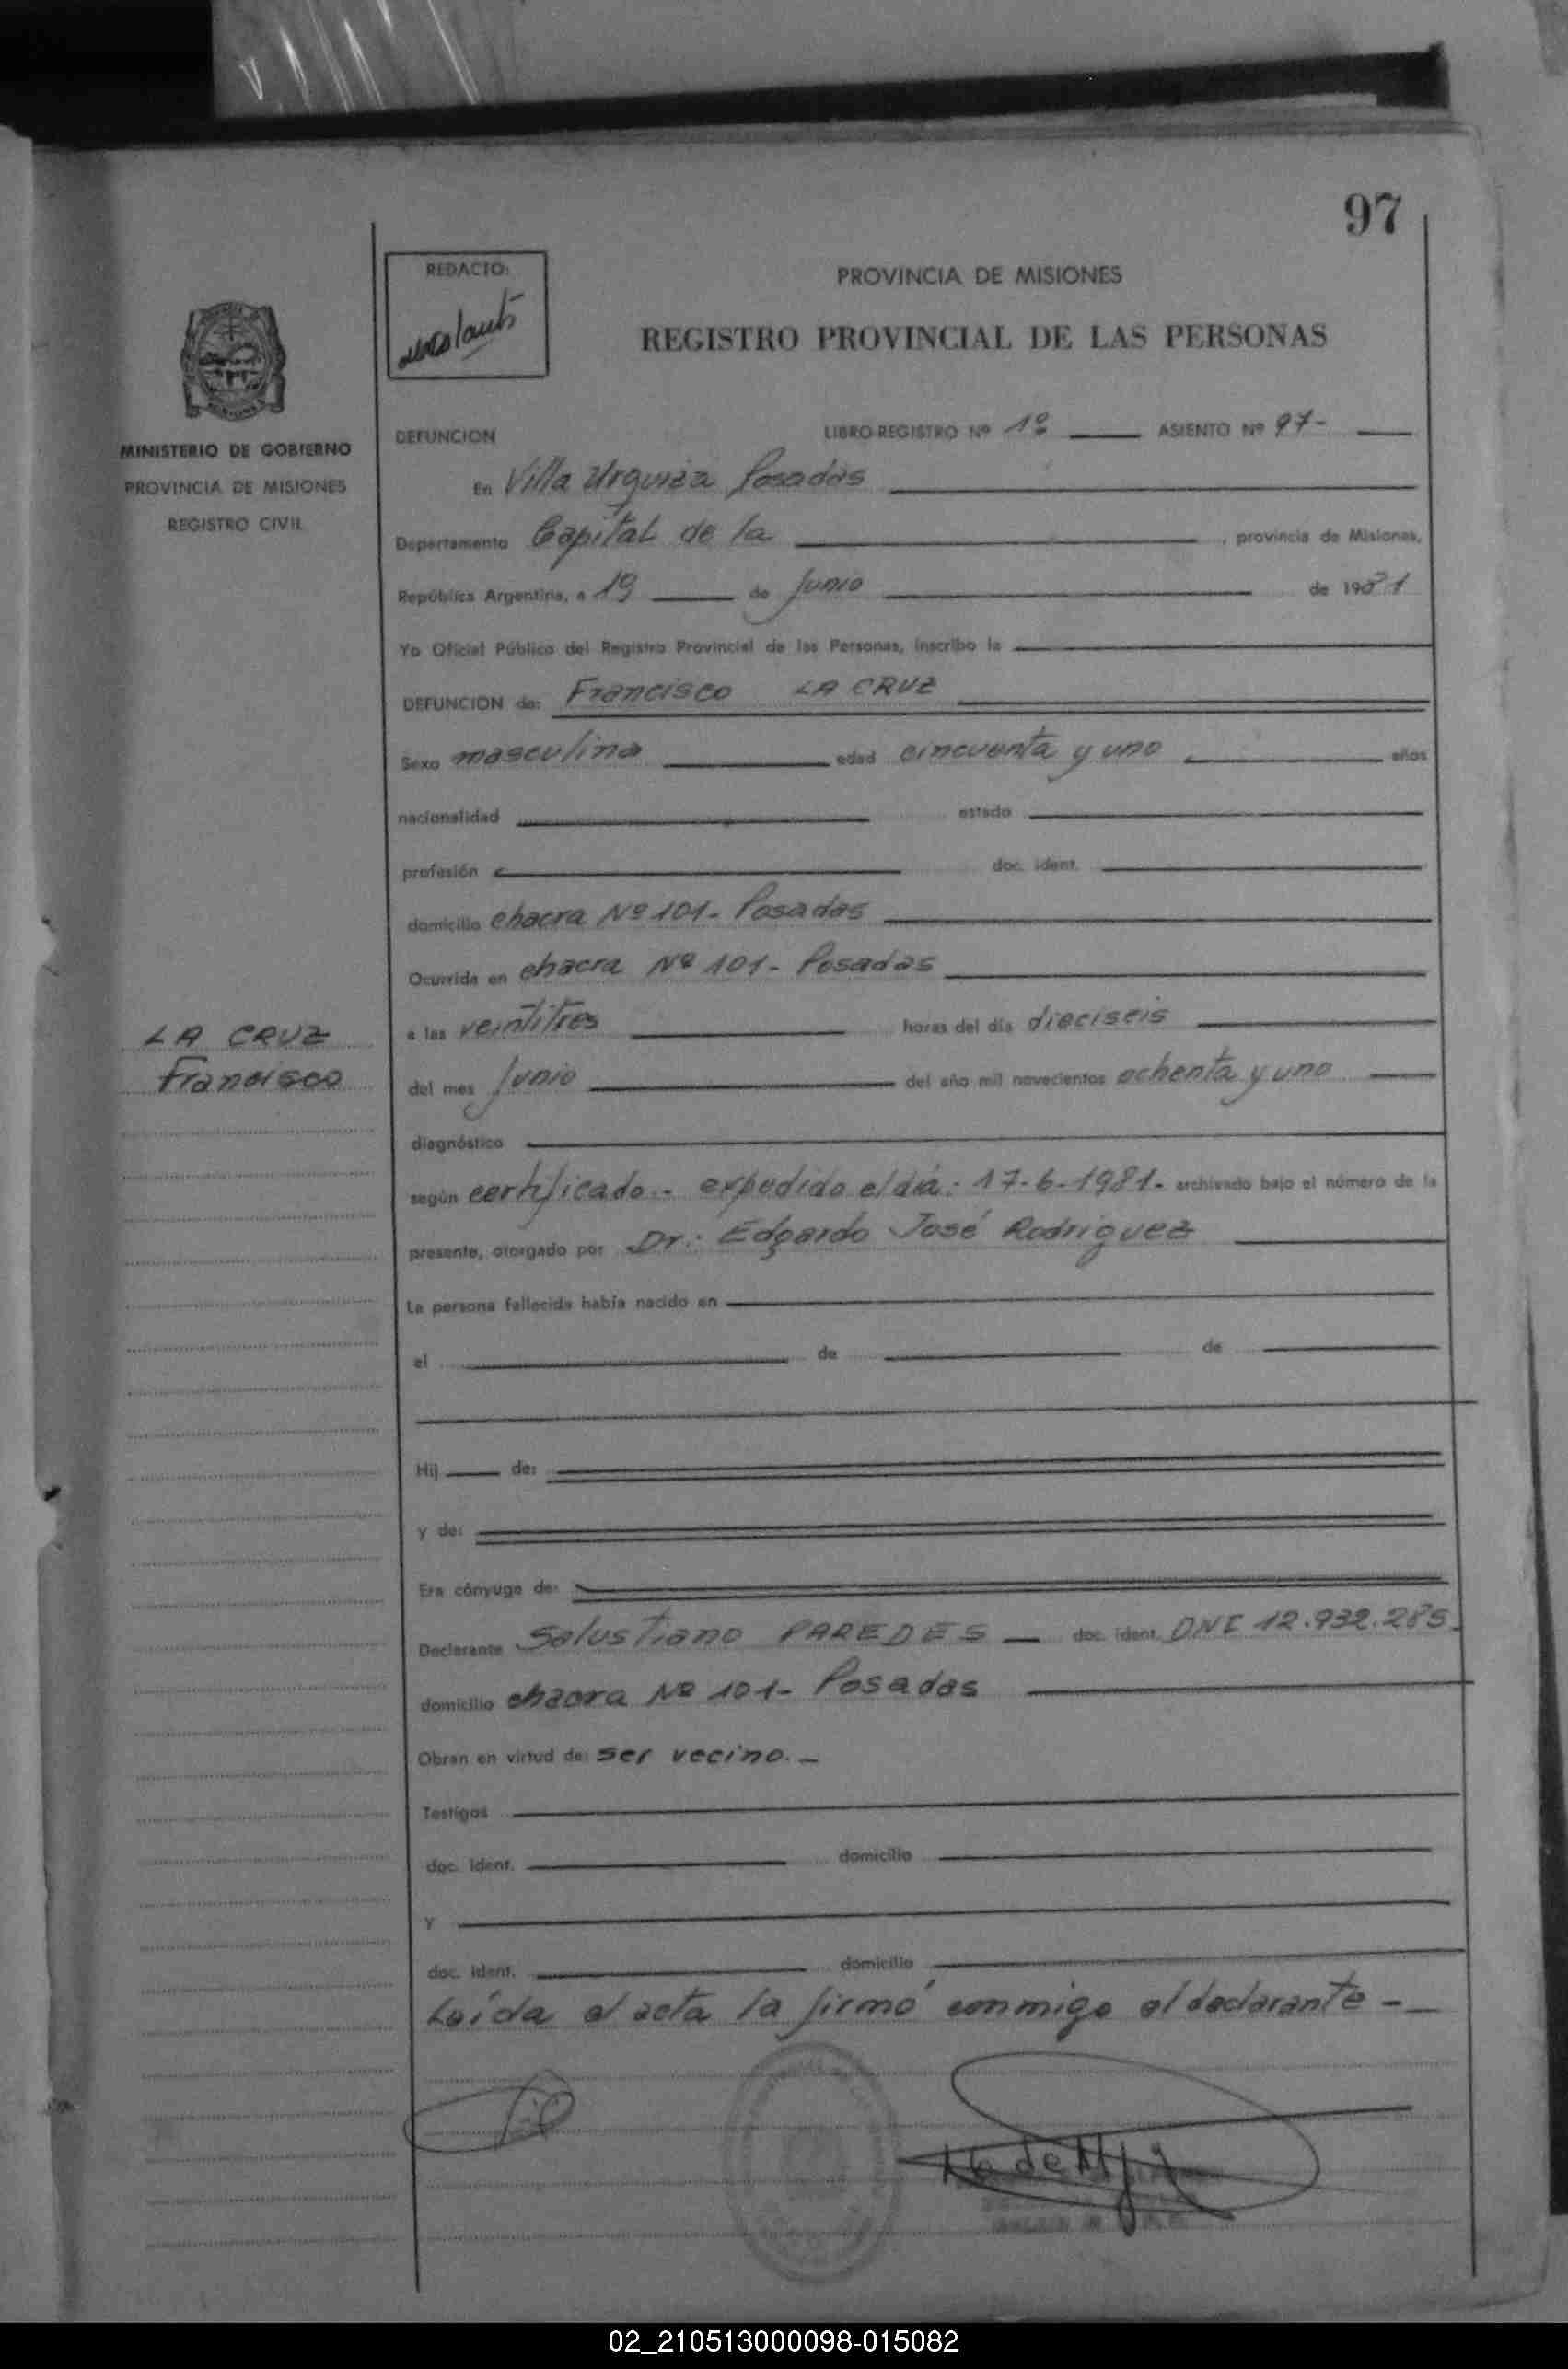 97
REDACTO:
PROVINCIA DE MISIONES
REGISTRO PROVINCIAL DE LAS PERSONAS
MINISTERIO DE GOBIERNO
PROVINCIA DE MISIONES
REGISTRO CIVIL
DEFUNCION LIBRO-REGISTRO Nº 1º ASIENTO Nº 97-
En Villa Urquiza Posadas
Departamento Capital de la , provincia de Misiones,
República Argentina, a 19 de Junio de 1981
Yo Oficial Público del Registro Provincial de las Personas, inscribo la
DEFUNCION de: Francisco LA CRUZ
Sexo masculino edad cincuenta y uno años
nacionalidad estado
profesión doc. ident.
domicilio chacra Nº 101- Posadas
Ocurrida en chacra Nº 101- Posadas
LA CRUZ
Francisco
a las veintitres horas del día dieciseis
del mes Junio del año mil novecientos ochenta y uno
diagnóstico
según certificado - expedido el día: 17-6-1981- archivado bajo el número de la
presente, otorgado por Dr.: Edgardo José Rodriguez
La persona fallecida había nacido en
el de de
Hij de:
y de:
Era cónyuge de:
Declarante Salustiano PAREDES doc. ident. DNI 12.932.285.
domicilio chacra Nº 101- Posadas
Obran en virtud de: ser vecino.-
Testigos
doc. ident. domicilio
y
doc. ident. domicilio
Leída el acta la firmó conmigo el declarante -
02_210513000098-015082